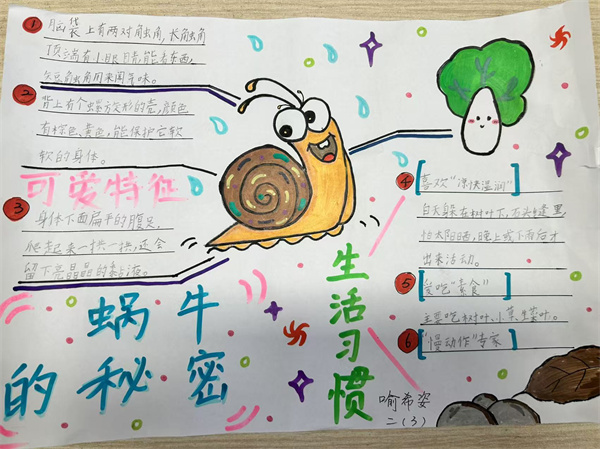 ① 脑袋上有两对触角,长触角
顶端有小眼睛,能看东西,
短触角用来闻气味。
② 背上有个螺旋形的壳,颜色
有棕色、黄色,能保护它软
软的身体。
可爱特征
③ 身体下面扁平的腹足,
爬起来一拱一拱,还会
留下亮晶晶的黏液。
蜗牛
的秘密
生活习惯
④ [喜欢“凉快湿润”]
白天躲在树叶下、石头缝里,
怕太阳晒,晚上或下雨后才
出来活动。
⑤ [爱吃“素食”]
主要吃树叶、小草、生菜叶。
⑥ [“慢动作”专家]
喻希姿
二(3)